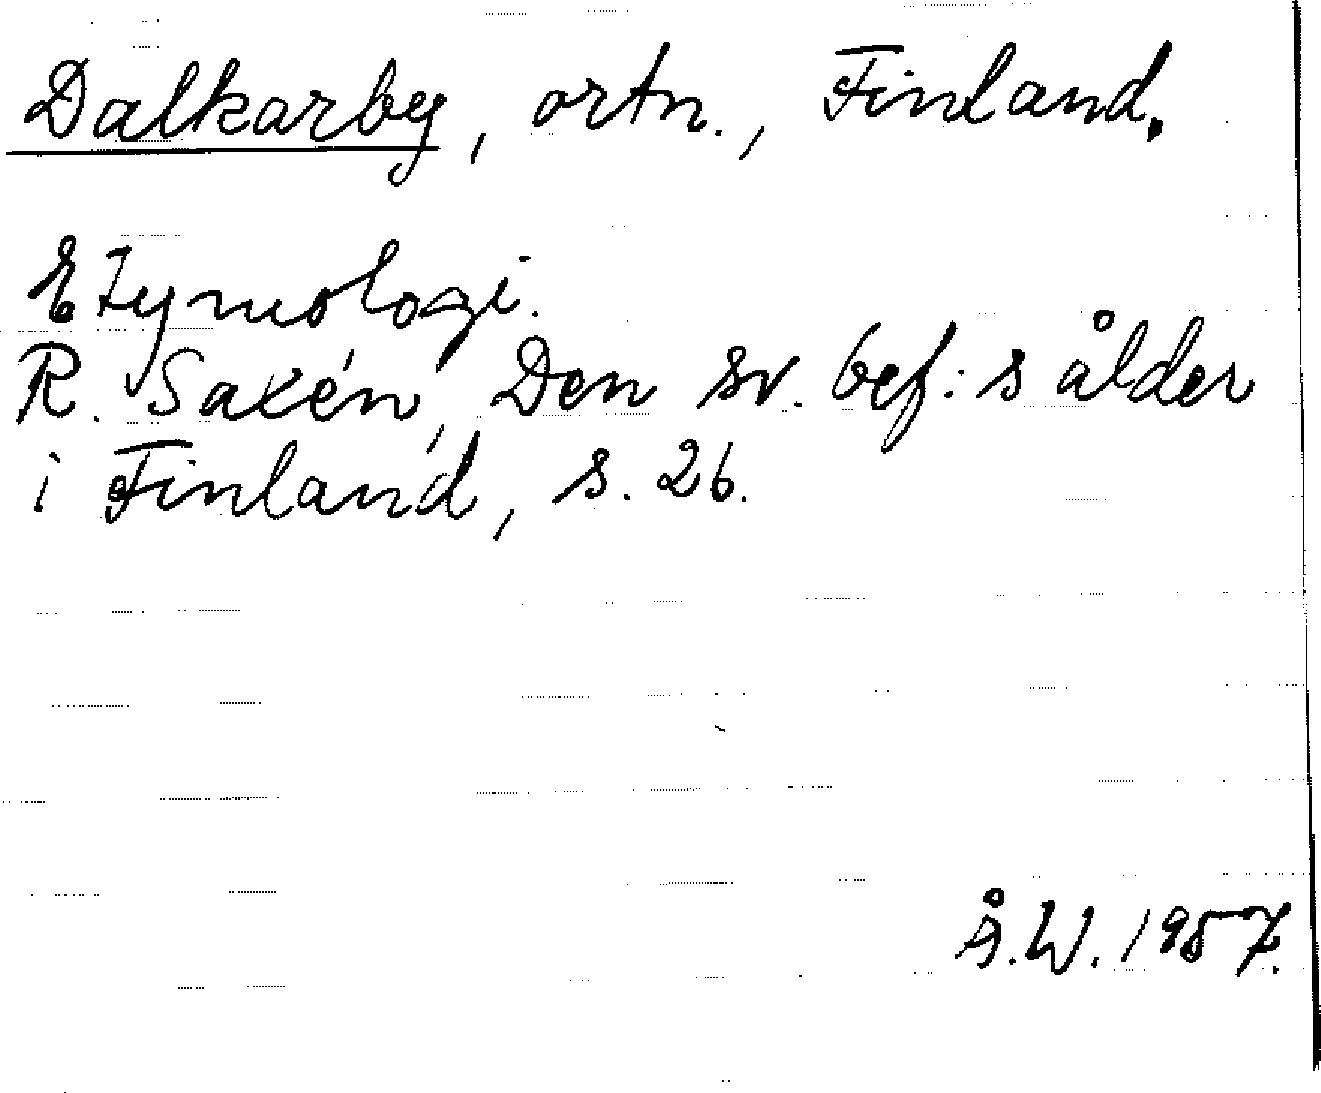 Dalkarby, ortn., Finland.
Etymologi.
R. Saxén, Den sv. bef:s ålder
i Finland, s. 26.
Å.W. 1957.